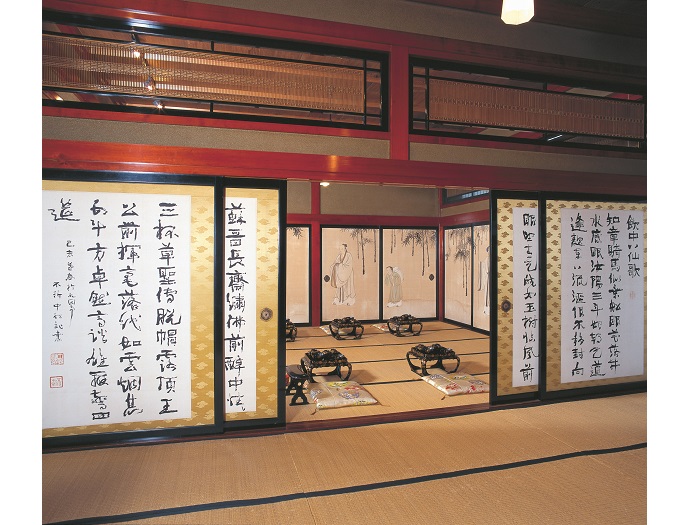 飲中八仙歌
知章騎馬似乗船眼花落井
水底眠汝陽三斗始朝天道
逢麹車口流涎恨不移封向
眼望青天皎如玉樹臨風前
蘇晋長齋繍佛前醉中往々
三杯草聖傳脱帽露頂王
公前揮毫落紙如雲烟焦
五斗方卓然高談雄辯驚四
筵